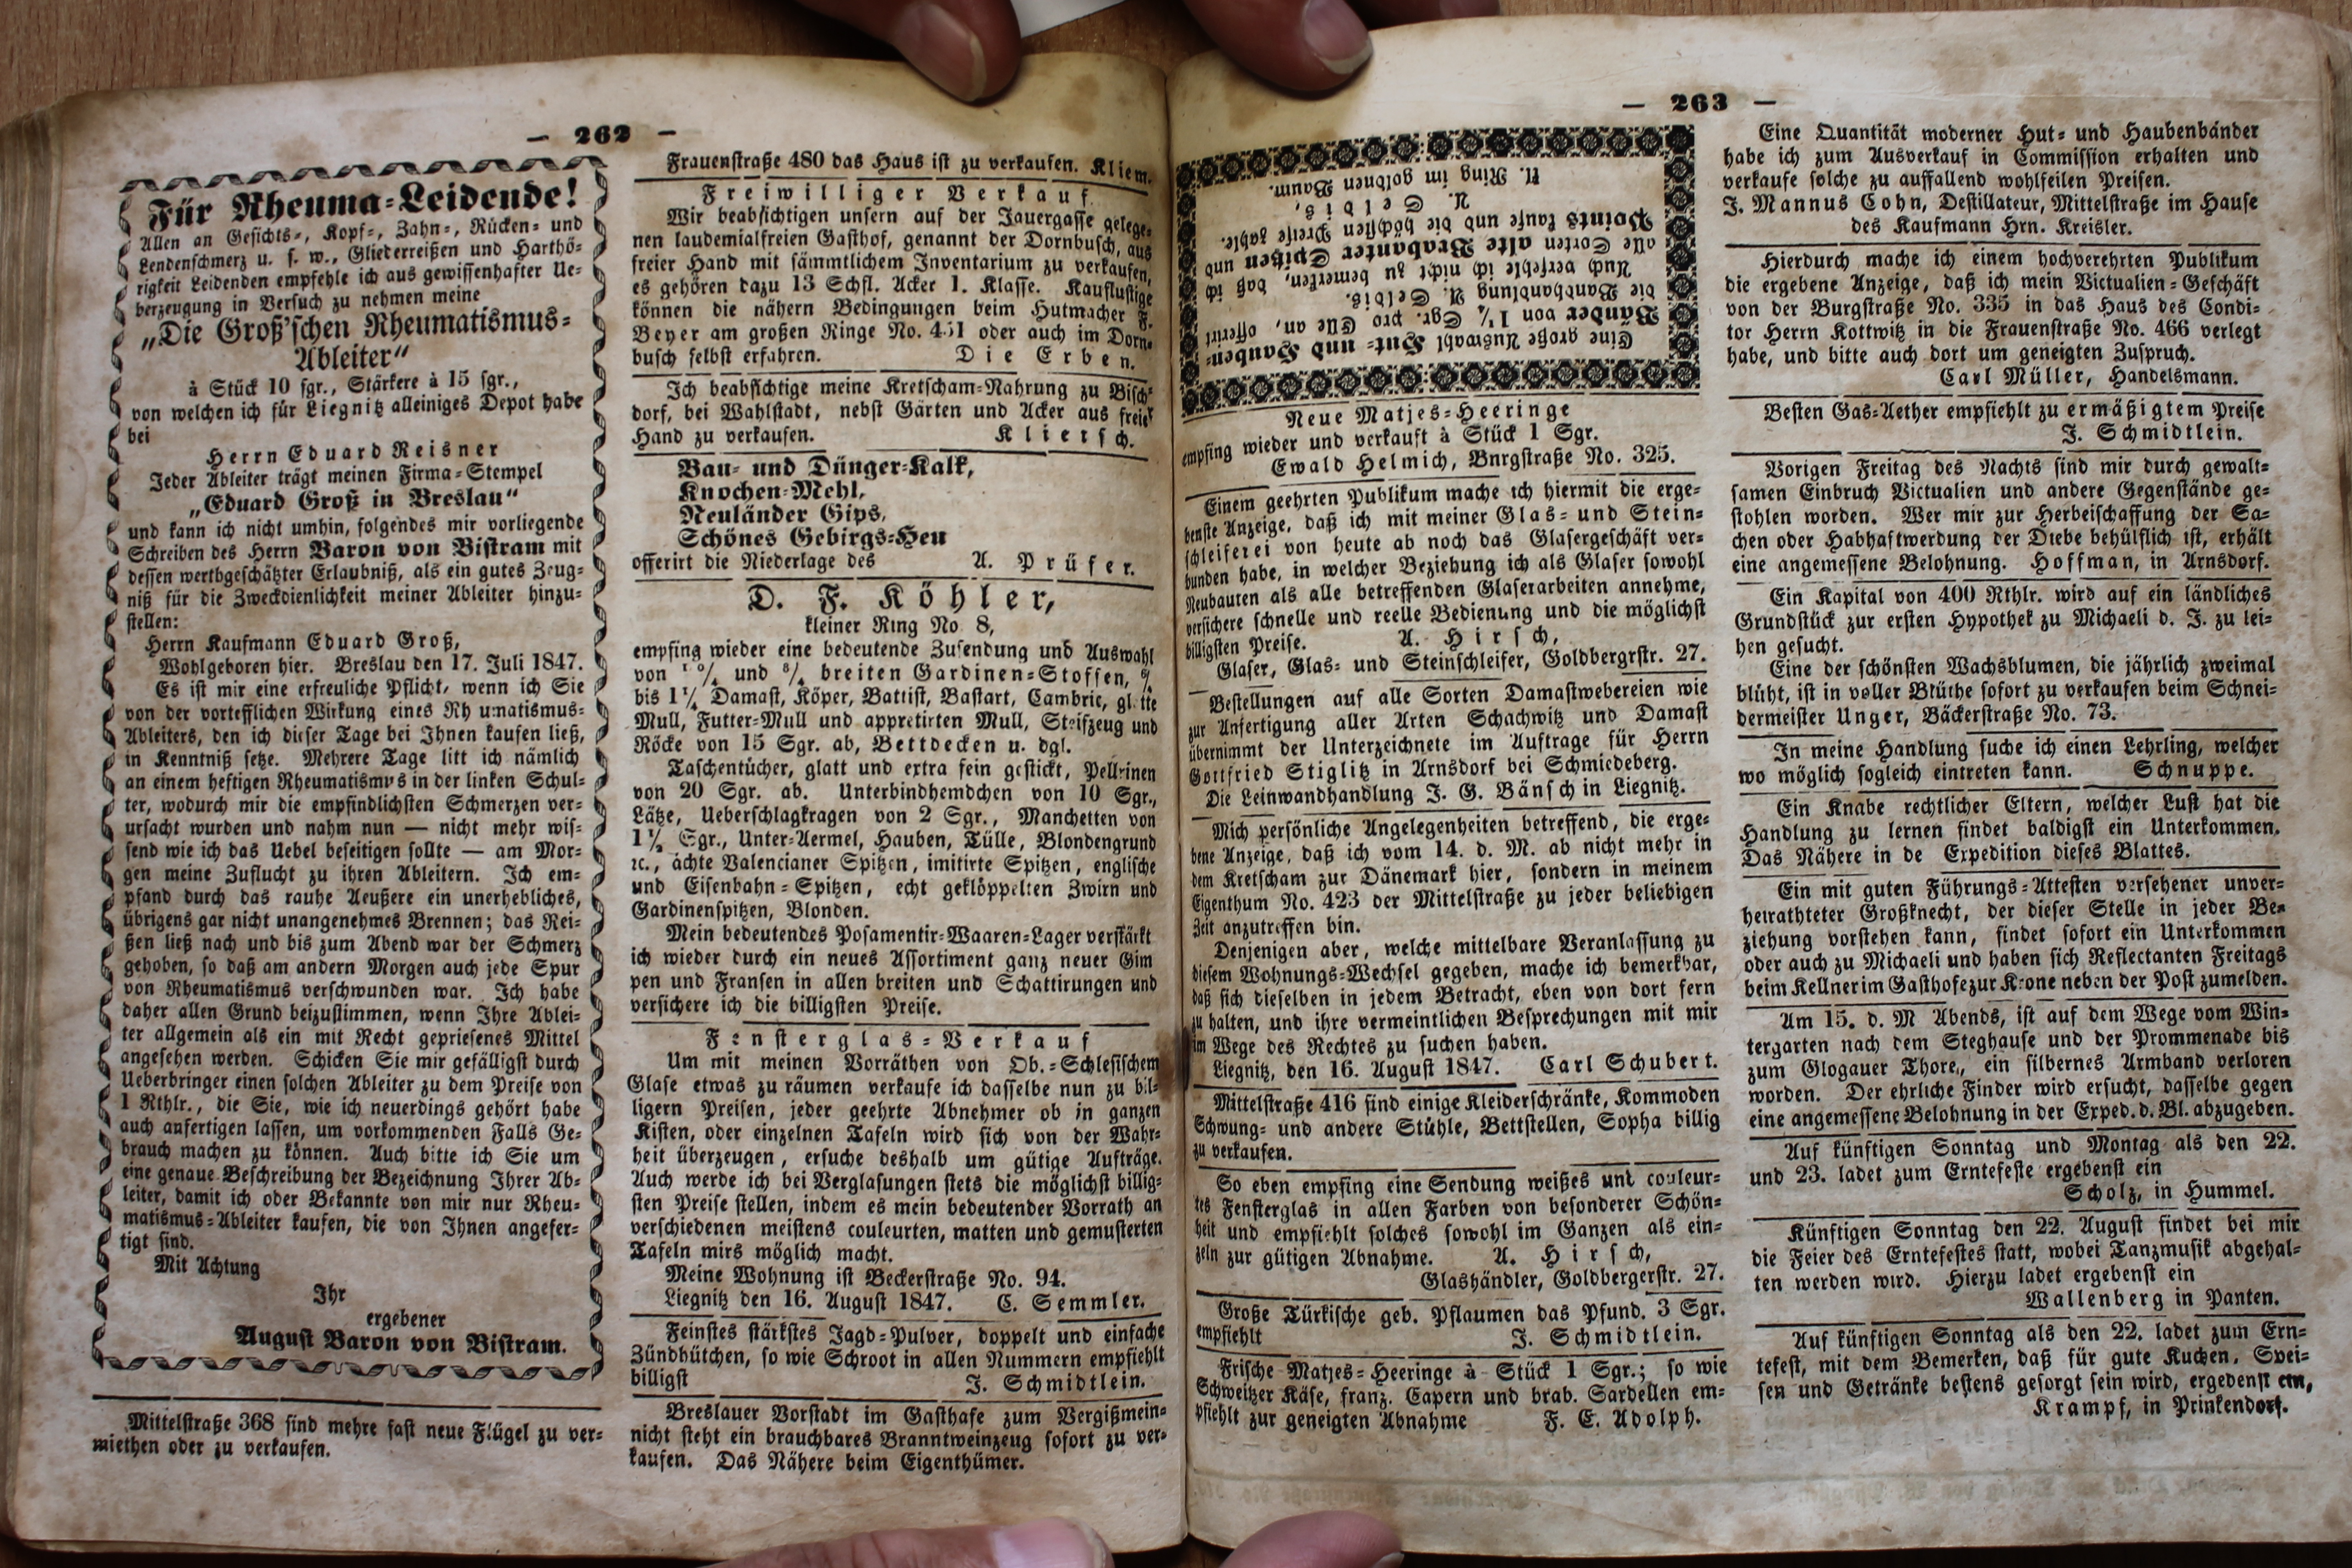 — 262 —
Für Rheuma=Leidende!
Allen an Gesichts=, Kopf=, Zahn=, Rücken= und
Lendenschmerz u. s. w., Gliederreißen und Harthö=
rigkeit Leidenden empfehle ich aus gewissenhafter Ue=
berzeugung in Versuch zu nehmen meine
„Die Groß'schen Rheumatismus=
Ableiter“
à Stück 10 sgr., Stärkere à 15 sgr.,
von welchen ich für Liegnitz alleiniges Depot habe
bei
Herrn Eduard Reisner
Jeder Ableiter trägt meinen Firma=Stempel
„Eduard Groß in Breslau“
und kann ich nicht umhin, folgendes mir vorliegende
Schreiben des Herrn Baron von Bistram mit
dessen werthgeschätzter Erlaubniß, als ein gutes Zeug=
niß für die Zweckdienlichkeit meiner Ableiter hinzu=
stellen:
Herrn Kaufmann Eduard Groß,
Wohlgeboren hier. Breslau den 17. Juli 1847.
Es ist mir eine erfreuliche Pflicht, wenn ich Sie
von der vortefflichen Wirkung eines Rh umatismus=
Ableiters, den ich dieser Tage bei Ihnen kaufen ließ,
in Kenntniß setze. Mehrere Tage litt ich nämlich
an einem heftigen Rheumatismus in der linken Schul=
ter, wodurch mir die empfindlichsten Schmerzen ver=
ursacht wurden und nahm nun — nicht mehr wis=
send wie ich das Uebel beseitigen sollte — am Mor=
gen meine Zuflucht zu ihren Ableitern. Ich em=
pfand durch das rauhe Aeußere ein unerhebliches,
übrigens gar nicht unangenehmes Brennen; das Rei=
ßen ließ nach und bis zum Abend war der Schmerz
gehoben, so daß am andern Morgen auch jede Spur
von Rheumatismus verschwunden war. Ich habe
daher allen Grund beizustimmen, wenn Ihre Ablei=
ter allgemein als ein mit Recht gepriesenes Mittel
angesehen werden. Schicken Sie mir gefälligst durch
Ueberbringer einen solchen Ableiter zu dem Preise von
1 Rthlr., die Sie, wie ich neuerdings gehört habe
auch anfertigen lassen, um vorkommenden Falls Ge=
brauch machen zu können. Auch bitte ich Sie um
eine genaue Beschreibung der Bezeichnung Ihrer Ab=
leiter, damit ich oder Bekannte von mir nur Rheu=
matismus=Ableiter kaufen, die von Ihnen angefer=
tigt sind.
Mit Achtung
Ihr
ergebener
August Baron von Bistram.
Mittelstraße 368 sind mehre fast neue Flügel zu ver=
miethen oder zu verkaufen.
Frauenstraße 480 das Haus ist zu verkaufen. Kliem.
Freiwilliger Verkauf
Wir beabsichtigen unsern auf der Jauergasse gelege=
nen laudemialfreien Gasthof, genannt der Dornbusch, aus
freier Hand mit sämmtlichem Inventarium zu verkaufen,
es gehören dazu 13 Schfl. Acker 1. Klasse. Kauflustige
können die nähern Bedingungen beim Hutmacher F.
Beyer am großen Ringe No. 451 oder auch im Dorn=
busch selbst erfahren. Die Erben.
Ich beabsichtige meine Kretscham=Nahrung zu Bisch=
dorf, bei Wahlstadt, nebst Gärten und Acker aus freier
Hand zu verkaufen. Klietsch.
Bau= und Dünger=Kalk,
Knochen=Mehl,
Neuländer Gips,
Schönes Gebirgs=Heu
offerirt die Niederlage des A. Prüfer.
D. F. Köhler,
kleiner Ring No. 8,
empfing wieder eine bedeutende Zusendung und Auswahl
von 10/4 und 8/4 breiten Gardinen=Stoffen, 6/4
bis 1 1/4 Damast, Köper, Battist, Bastart, Cambric, gl tte
Mull, Futter=Mull und appretirten Mull, Steifzeug und
Röcke von 15 Sgr. ab, Bettdecken u. dgl.
Taschentücher, glatt und extra fein gestickt, Pellrinen
von 20 Sgr. ab. Unterbindhemdchen von 10 Sgr.,
Lätze, Ueberschlagkragen von 2 Sgr., Manchetten von
1 1/2 Sgr., Unter=Aermel, Hauben, Tülle, Blondengrund
ꝛc., ächte Valencianer Spitzen, imitirte Spitzen, englische
und Eisenbahn=Spitzen, echt geklöppelten Zwirn und
Gardinenspitzen, Blonden.
Mein bedeutendes Posamentir=Waaren=Lager verstärkt
ich wieder durch ein neues Assortiment ganz neuer Gim
pen und Fransen in allen breiten und Schattirungen und
versichere ich die billigsten Preise.
Fensterglas=Verkauf
Um mit meinen Vorräthen von Ob.=Schlesischem
Glase etwas zu räumen verkaufe ich dasselbe nun zu bil=
ligern Preisen, jeder geehrte Abnehmer ob in ganzen
Kisten, oder einzelnen Tafeln wird sich von der Wahr=
heit überzeugen, ersuche deshalb um gütige Aufträge.
Auch werde ich bei Verglasungen stets die möglichst billig=
sten Preise stellen, indem es mein bedeutender Vorrath an
verschiedenen meistens couleurten, matten und gemusterten
Tafeln mirs möglich macht.
Meine Wohnung ist Beckerstraße No. 94.
Liegnitz den 16. August 1847. C. Semmler.
Feinstes stärkstes Jagd=Pulver, doppelt und einfache
Zündhütchen, so wie Schroot in allen Nummern empfiehlt
billigst J. Schmidtlein.
Breslauer Vorstadt im Gasthafe zum Vergißmein=
nicht steht ein brauchbares Branntweinzeug sofort zu ver=
kaufen. Das Nähere beim Eigenthümer.
— 263 —
Eine große Auswahl Hut= und Hauben=
Bänder von 1 1/4 Sgr. pro Elle an, offerirt
die Bandhandlung A. Selbis.
Auch verfehle ich nicht zu bemerken, daß ich
alle Sorten alte Brabanter Spitzen und
Points kaufe und die höchsten Preise zahle.
A. Selbis,
A. Ring im goldnen Baum.
Neue Matjes=Heeringe
empfing wieder und verkauft à Stück 1 Sgr.
Ewald Helmich, Bnrgstraße No. 325.
Einem geehrten Publikum mache ich hiermit die erge=
benste Anzeige, daß ich mit meiner Glas= und Stein=
schleiferei von heute ab noch das Glasergeschäft ver=
bunden habe, in welcher Beziehung ich als Glaser sowohl
Neubauten als alle betreffenden Glaserarbeiten annehme,
versichere schnelle und reelle Bedienung und die möglichst
billigsten Preise. A. Hirsch,
Glaser, Glas= und Steinschleifer, Goldbergrstr. 27.
Bestellungen auf alle Sorten Damastwebereien wie
zur Anfertigung aller Arten Schachwitz und Damast
übernimmt der Unterzeichnete im Auftrage für Herrn
Gottfried Stiglitz in Arnsdorf bei Schmiedeberg.
Die Leinwandhandlung J. G. Bänsch in Liegnitz.
Mich persönliche Angelegenheiten betreffend, die erge=
bene Anzeige, daß ich vom 14. d. M. ab nicht mehr in
dem Kretscham zur Dänemark hier, sondern in meinem
Eigenthum No. 423 der Mittelstraße zu jeder beliebigen
Zeit anzutreffen bin.
Denjenigen aber, welche mittelbare Veranlassung zu
diesem Wohnungs=Wechsel gegeben, mache ich bemerkbar,
daß sich dieselben in jedem Betracht, eben von dort fern
zu halten, und ihre vermeintlichen Besprechungen mit mir
im Wege des Rechtes zu suchen haben.
Liegnitz, den 16. August 1847. Carl Schubert.
Mittelstraße 416 sind einige Kleiderschränke, Kommoden
Schwung= und andere Stühle, Bettstellen, Sopha billig
zu verkaufen.
So eben empfing eine Sendung weißes und couleur=
tes Fensterglas in allen Farben von besonderer Schön=
heit und empfiehlt solches sowohl im Ganzen als ein=
zeln zur gütigen Abnahme. A. Hirsch,
Glashändler, Goldbergerstr. 27.
Große Türkische geb. Pflaumen das Pfund. 3 Sgr.
empfiehlt J. Schmidtlein.
Frische Matjes=Heeringe à Stück 1 Sgr.; so wie
Schweitzer Käse, franz. Capern und brab. Sardellen em=
pfiehlt zur geneigten Abnahme F. E. Adolph.
Eine Quantität moderner Hut= und Haubenbänder
habe ich zum Ausverkauf in Commission erhalten und
verkaufe solche zu auffallend wohlfeilen Preisen.
J. Mannus Cohn, Destillateur, Mittelstraße im Hause
des Kaufmann Hrn. Kreisler.
Hierdurch mache ich einem hochverehrten Publikum
die ergebene Anzeige, daß ich mein Victualien=Geschäft
von der Burgstraße No. 335 in das Haus des Condi=
tor Herrn Kottwitz in die Frauenstraße No. 466 verlegt
habe, und bitte auch dort um geneigten Zuspruch.
Carl Müller, Handelsmann.
Besten Gas=Aether empfiehlt zu ermäßigtem Preise
J. Schmidtlein.
Vorigen Freitag des Nachts sind mir durch gewalt=
samen Einbruch Victualien und andere Gegenstände ge=
stohlen worden. Wer mir zur Herbeischaffung der Sa=
chen oder Habhaftwerdung der Diebe behülflich ist, erhält
eine angemessene Belohnung. Hoffman, in Arnsdorf.
Ein Kapital von 400 Rthlr. wird auf ein ländliches
Grundstück zur ersten Hypothek zu Michaeli d. J. zu lei=
hen gesucht.
Eine der schönsten Wachsblumen, die jährlich zweimal
blüht, ist in voller Blüthe sofort zu verkaufen beim Schnei=
dermeister Unger, Bäckerstraße No. 73.
In meine Handlung suche ich einen Lehrling, welcher
wo möglich sogleich eintreten kann. Schnuppe.
Ein Knabe rechtlicher Eltern, welcher Lust hat die
Handlung zu lernen findet baldigst ein Unterkommen.
Das Nähere in de Expedition dieses Blattes.
Ein mit guten Führungs=Attesten versehener unver=
heirathteter Großknecht, der dieser Stelle in jeder Be=
ziehung vorstehen kann, findet sofort ein Unterkommen
oder auch zu Michaeli und haben sich Reflectanten Freitags
beim Kellner im Gasthofe zur Krone neben der Post zu melden.
Am 15. d. M Abends, ist auf dem Wege vom Win=
tergarten nach dem Steghause und der Prommenade bis
zum Glogauer Thore,, ein silbernes Armband verloren
worden. Der ehrliche Finder wird ersucht, dasselbe gegen
eine angemessene Belohnung in der Exped. d. Bl. abzugeben.
Auf künftigen Sonntag und Montag als den 22.
und 23. ladet zum Erntefeste ergebenst ein
Scholz, in Hummel.
Künftigen Sonntag den 22. August findet bei mir
die Feier des Erntefestes statt, wobei Tanzmusik abgehal=
ten werden wird. Hierzu ladet ergebenst ein
Wallenberg in Panten.
Auf künftigen Sonntag als den 22. ladet zum Ern=
tefest, mit dem Bemerken, daß für gute Kuchen, Spei=
sen und Getränke bestens gesorgt sein wird, ergebenst ein,
Krampf, in Prinkendorf.